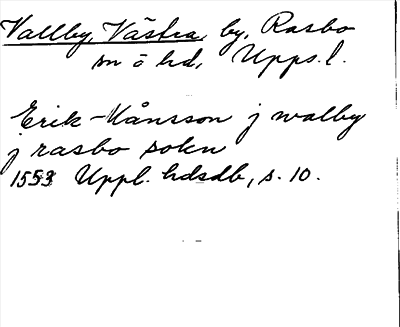 Vallby, Västra, by, Rasbo
sn o hd, Upps. l.
Erik Månsson j walby
j rasbo sokn
1553 Uppl. hdsdb, s. 10.